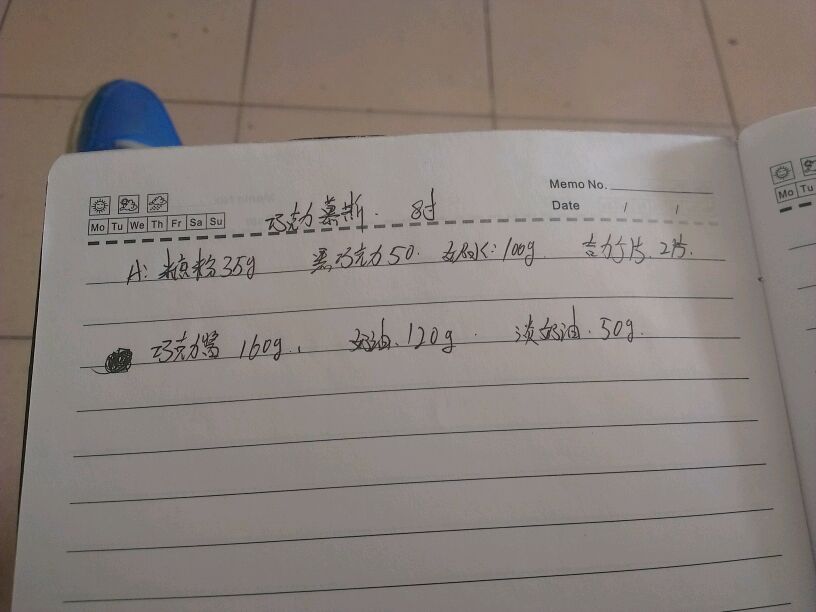 Memo No.
Mo Tu We Th Fr Sa Su
巧克力慕斯. 8寸
Date / /
A: 粉35g 黑巧克力50. 100g. 吉力片. 2片.
巧克力酱 160g. 奶油. 120g. 淡奶油. 50g.
Mo Tu